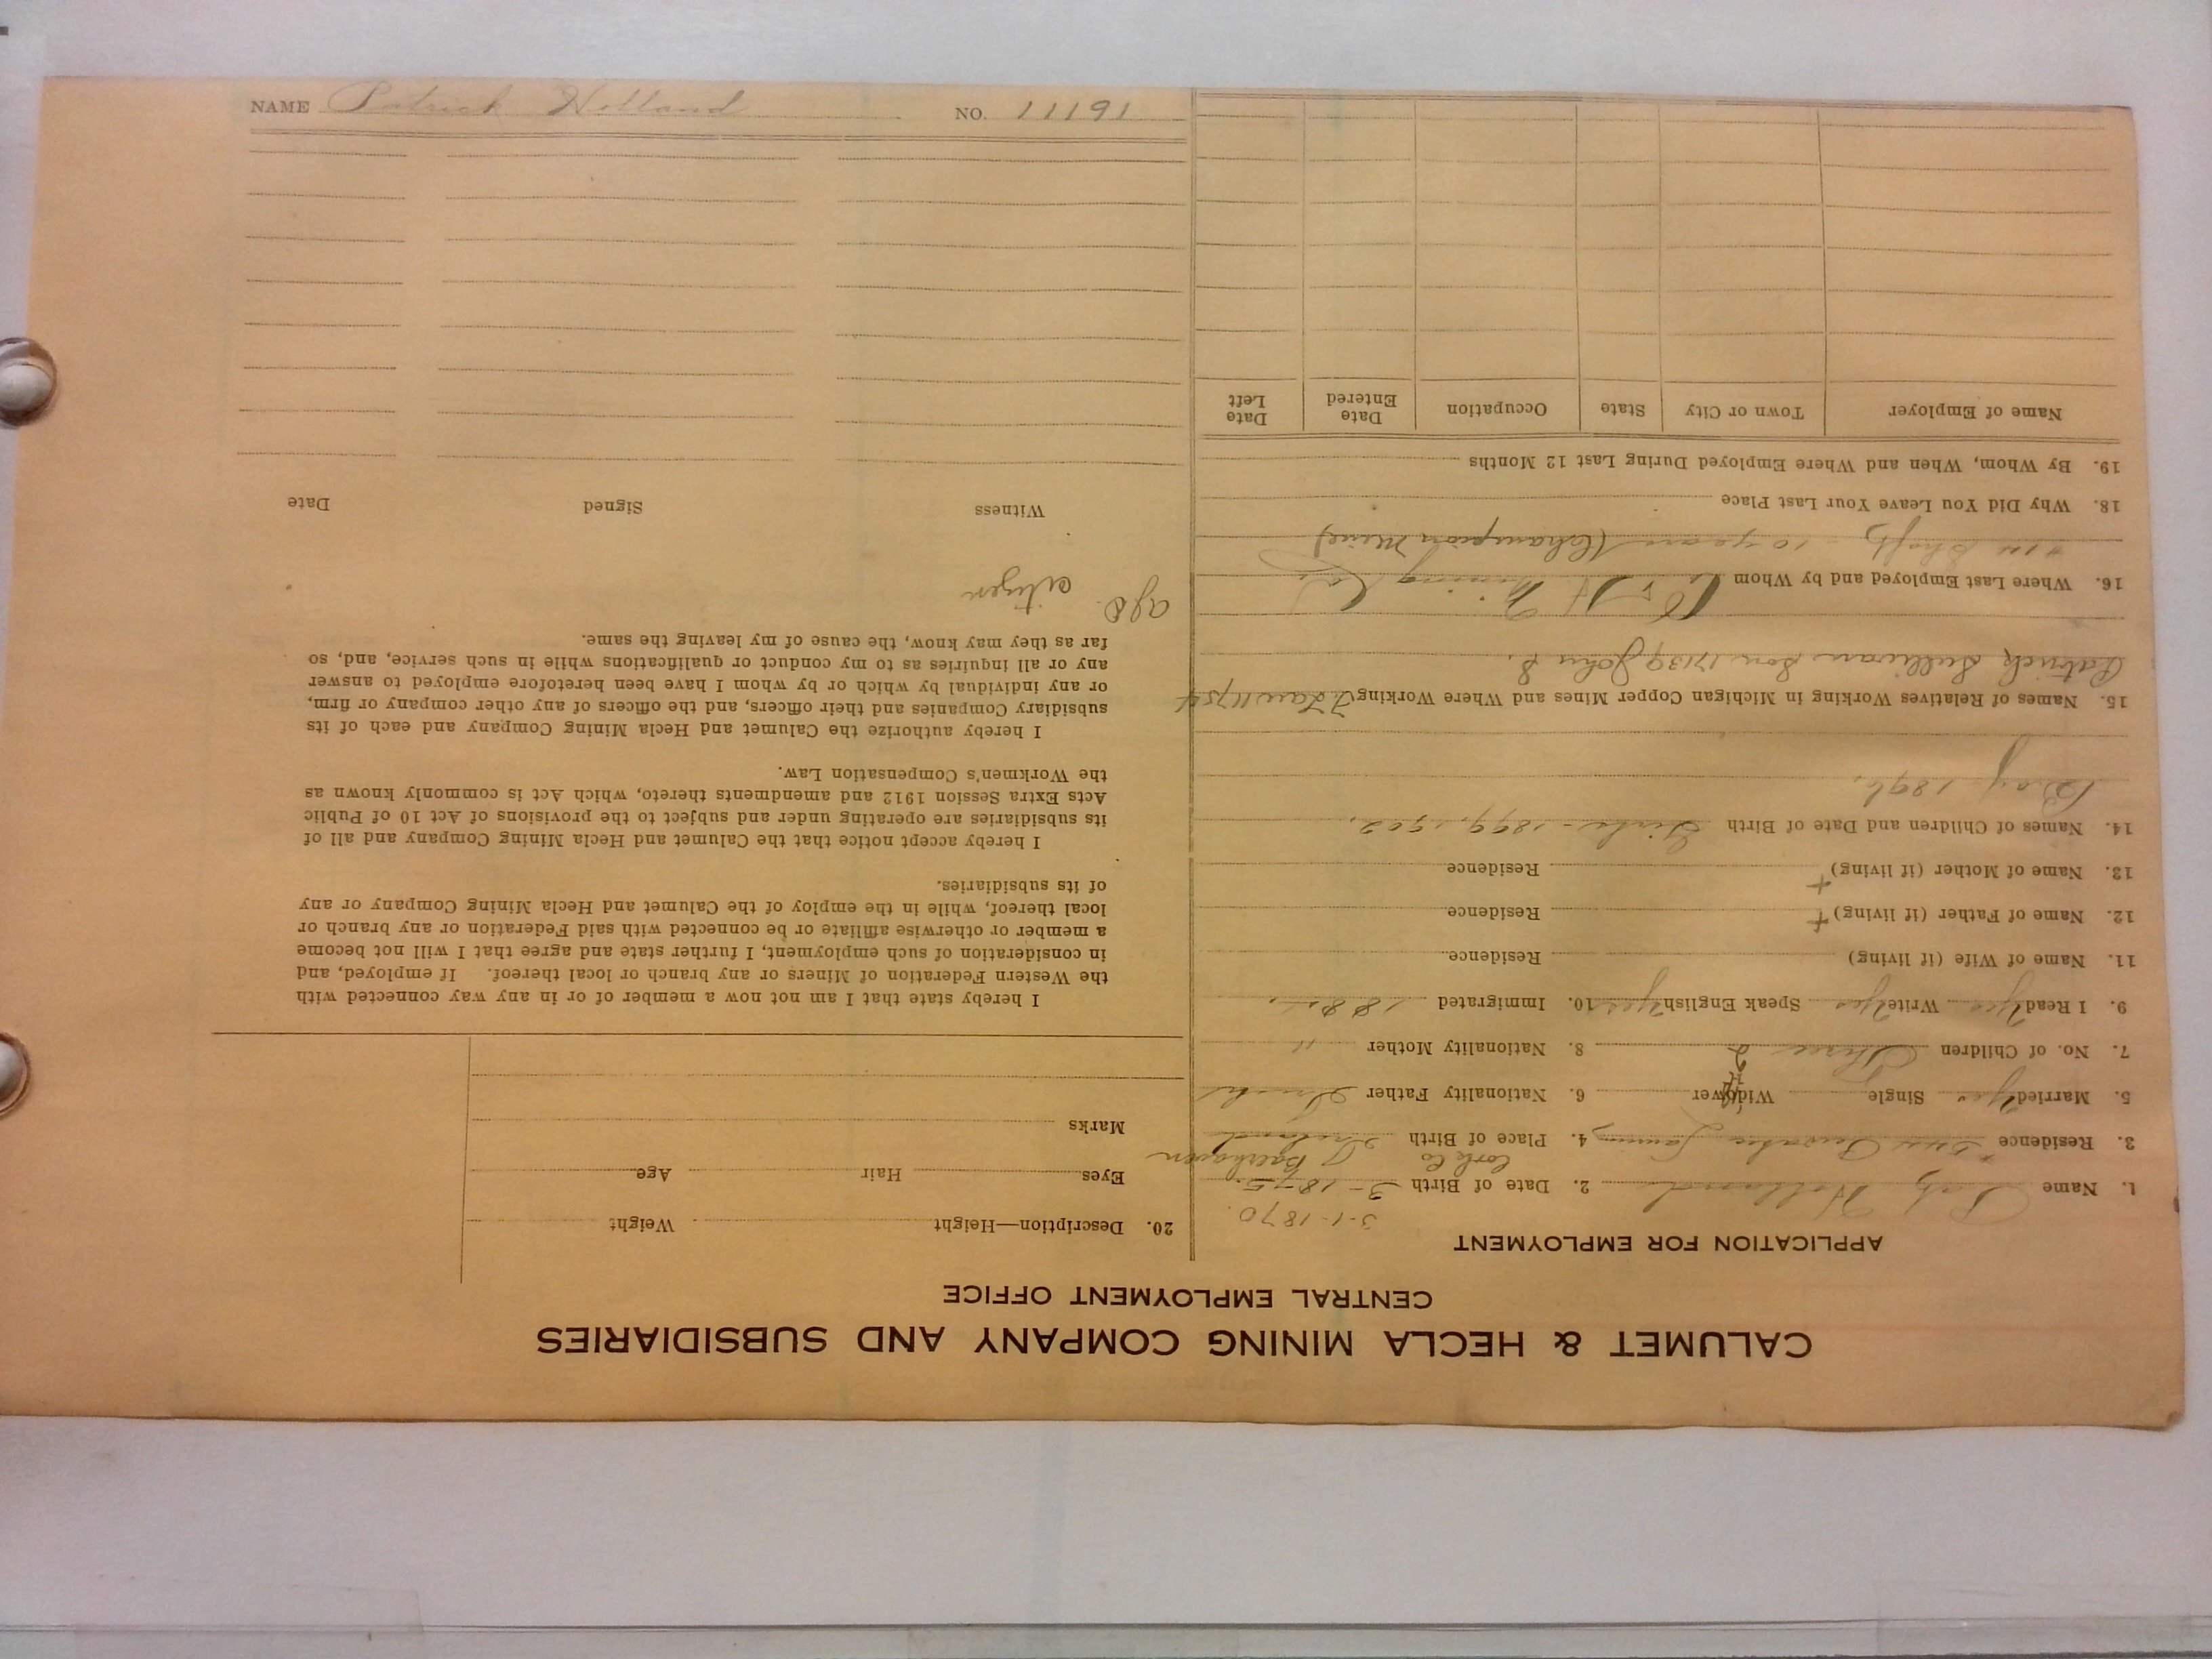 NAME Patrick Holland NO. 11191
CALUMET & HECLA MINING COMPANY AND SUBSIDIARIES
CENTRAL EMPLOYMENT OFFICE
APPLICATION FOR EMPLOYMENT
3-1-1870
1. Name Pat Holland 2. Date of Birth 3-1875.
Cork Co
3. Residence Tamy 4. Place of Birth Ireland
5. Married yes Single Widower 6. Nationality Father Irish
7. No. of Children Three 8. Nationality Mother "
9. I Read yes Write yes Speak English yes 10. Immigrated
11. Name of Wife (if living) Residence
12. Name of Father (if living) + Residence
13. Name of Mother (if living) + Residence
14. Names of Children and Date of Birth Girls - 1899, 1902,
Boy 1896,
15. Names of Relatives Working in Michigan Copper Mines and Where Working
Patrick Sullivan Son 17139 John S.
16. Where Last Employed and by Whom Mining Co
Shaft - 10 years (Champion Mine)
18. Why Did You Leave Your Last Place
19. By Whom, When and Where Employed During Last 12 Months
Name of Employer Town or City State Occupation Date Entered Date Left
20. Description—Height Weight
Eyes Hair Age
Marks
I hereby state that I am not now a member of or in any way connected with
the Western Federation of Miners or any branch or local thereof. If employed, and
in consideration of such employment, I further state and agree that I will not become
a member or otherwise affiliate or be connected with said Federation or any branch or
local thereof, while in the employ of the Calumet and Hecla Mining Company or any
of its subsidiaries.
I hereby accept notice that the Calumet and Hecla Mining Company and all of
its subsidiaries are operating under and subject to the provisions of Act 10 of Public
Acts Extra Session 1912 and amendments thereto, which Act is commonly known as
the Workmen's Compensation Law.
I hereby authorize the Calumet and Hecla Mining Company and each of its
subsidiary Companies and their officers, and the officers of any other company or firm,
or any individual by which or by whom I have been heretofore employed to answer
any or all inquiries as to my conduct or qualifications while in such service, and, so
far as they may know, the cause of my leaving the same.
ago. citizen
Witness Signed Date